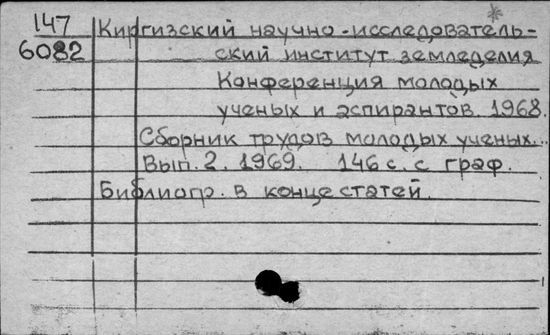 147 Киргизский научно-исследователь-
6082 ский институт земледелия
Конференция молодых
ученых и аспирантов. 1968.
Сборник трудов молодых ученых...
Вып. 2. 1969. 146 с. с граф.
Библиогр. в конце статей.